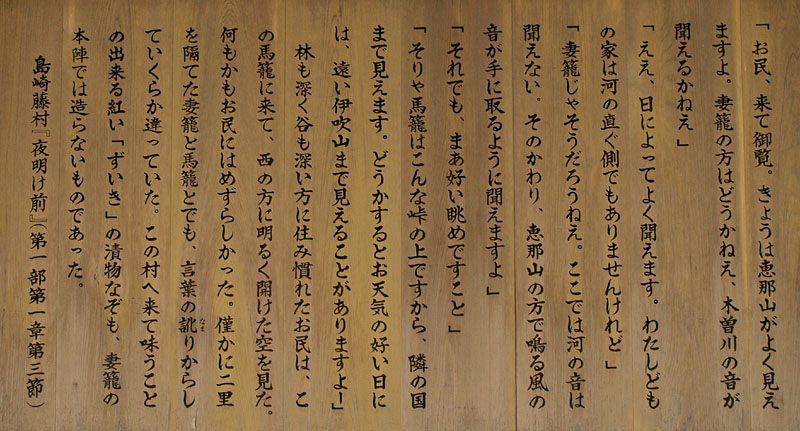 「お民、来て御覧。きょうは恵那山がよく見え
ますよ。妻籠の方はどうかねえ、木曽川の音が
聞えるかねえ」
「ええ、日によってよく聞えます。わたしども
の家は河の直ぐ側でもありませんけれど」
「妻籠じゃそうだろうねえ。ここでは河の音は
聞えない。そのかわり、恵那山の方で鳴る風の
音が手に取るように聞えますよ」
「それでも、まあ好い眺めですこと」
「そりゃ馬籠はこんな峠の上ですから、隣の国
まで見えます。どうかするとお天気の好い日に
は、遠い伊吹山まで見えることがありますよー」
林も深く谷も深い方に住み慣れたお民は、こ
の馬籠に来て、西の方に明るく開けた空を見た。
何もかもお民にはめずらしかった。僅かに二里
を隔てた妻籠と馬籠とでも、言葉の訛りからし
なま
ていくらか違っていた。この村へ来て味うこと
の出来る紅い「ずいき」の漬物なぞも、妻籠の
本陣では造らないものであった。
島崎藤村『夜明け前』(第一部第一章第三節)